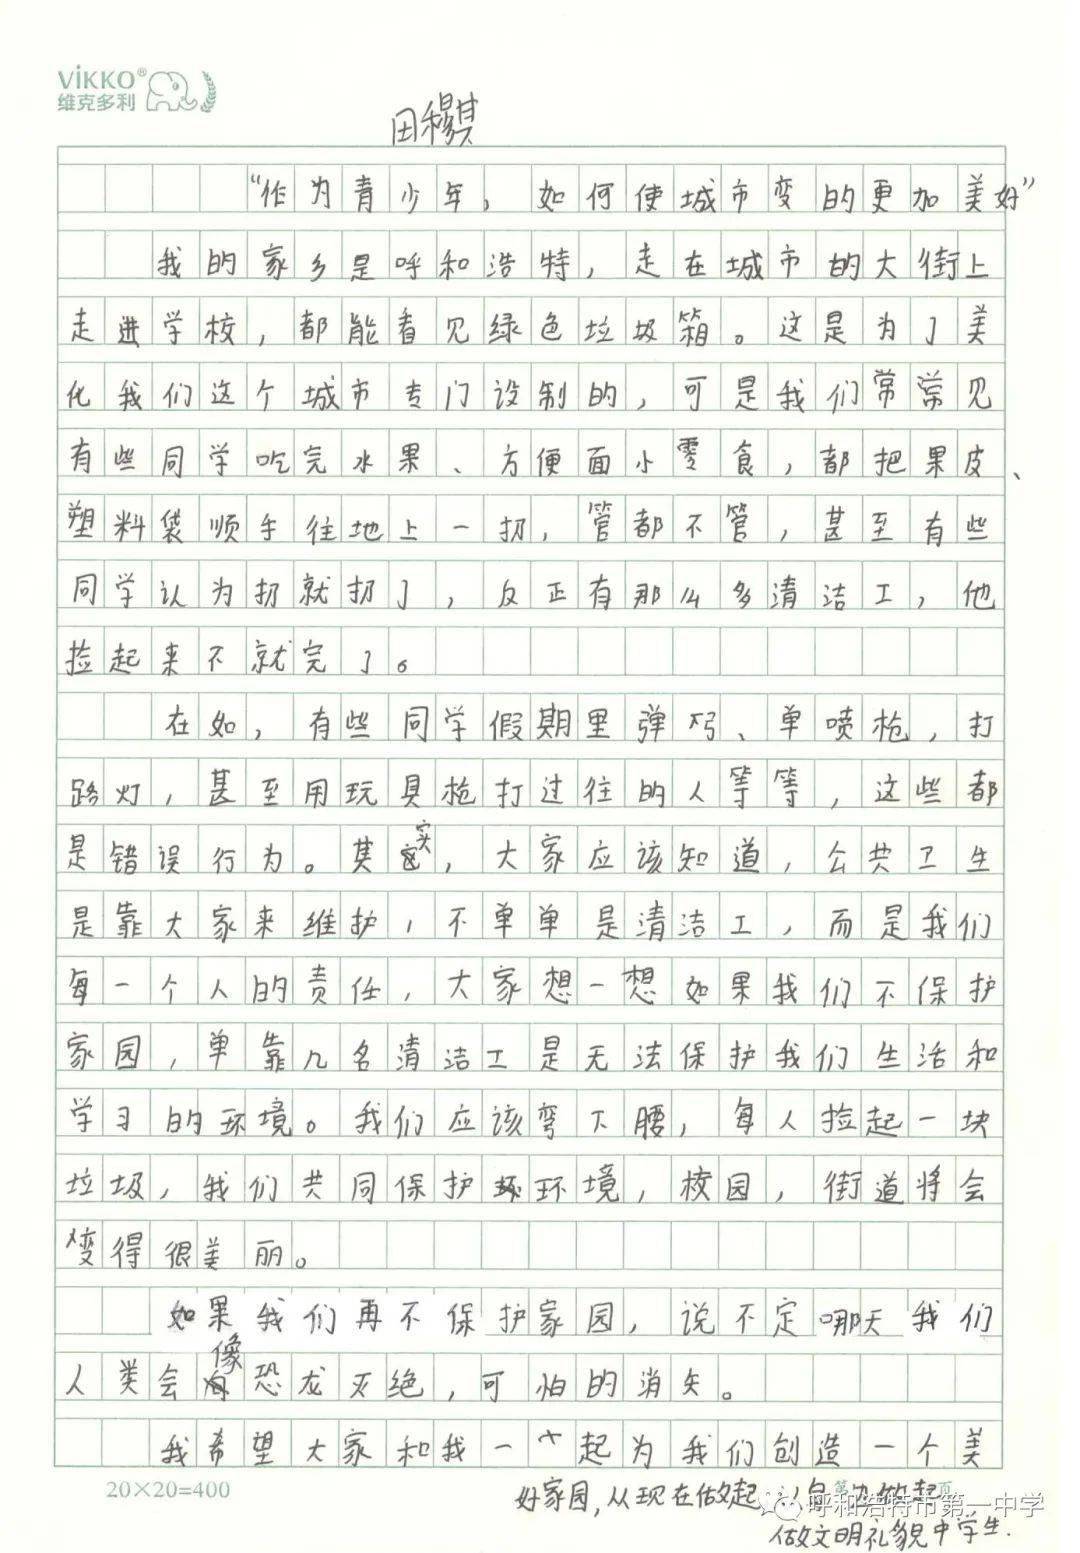 ViKKO®
维克多利
田稼琪
“作为青少年，如何使城市变的更加美好”
我的家乡是呼和浩特，走在城市的大街上
走进学校，都能看见绿色垃圾箱。这是为了美
化我们这个城市专门设制的，可是我们常常见
有些同学吃完水果、方便面小零食，都把果皮、
塑料袋顺手往地上一扔，管都不管，甚至有些
同学认为扔就扔了，反正有那么多清洁工，他
捡起来不就完了。
在如，有些同学假期里弹 、单喷枪，打
路灯，甚至用玩具枪打过往的人等等，这些都
是错误行为。其实，大家应该知道，公共卫生
是靠大家来维护，不单单是清洁工，而是我们
每一个人的责任，大家想一想如果我们不保护
家园，单靠几名清洁工是无法保护我们生活和
学习的环境。我们应该弯下腰，每人捡起一块
垃圾，我们共同保护环境，校园，街道将会
变得很美丽。
如果我们再不保护家园，说不定哪天我们
人类会像恐龙灭绝，可怕的消失。
我希望大家和我一起为我们创造一个美
好家园，从现在做起 做起
做文明礼貌中学生.
20×20=400
第 页
呼和浩特市第一中学